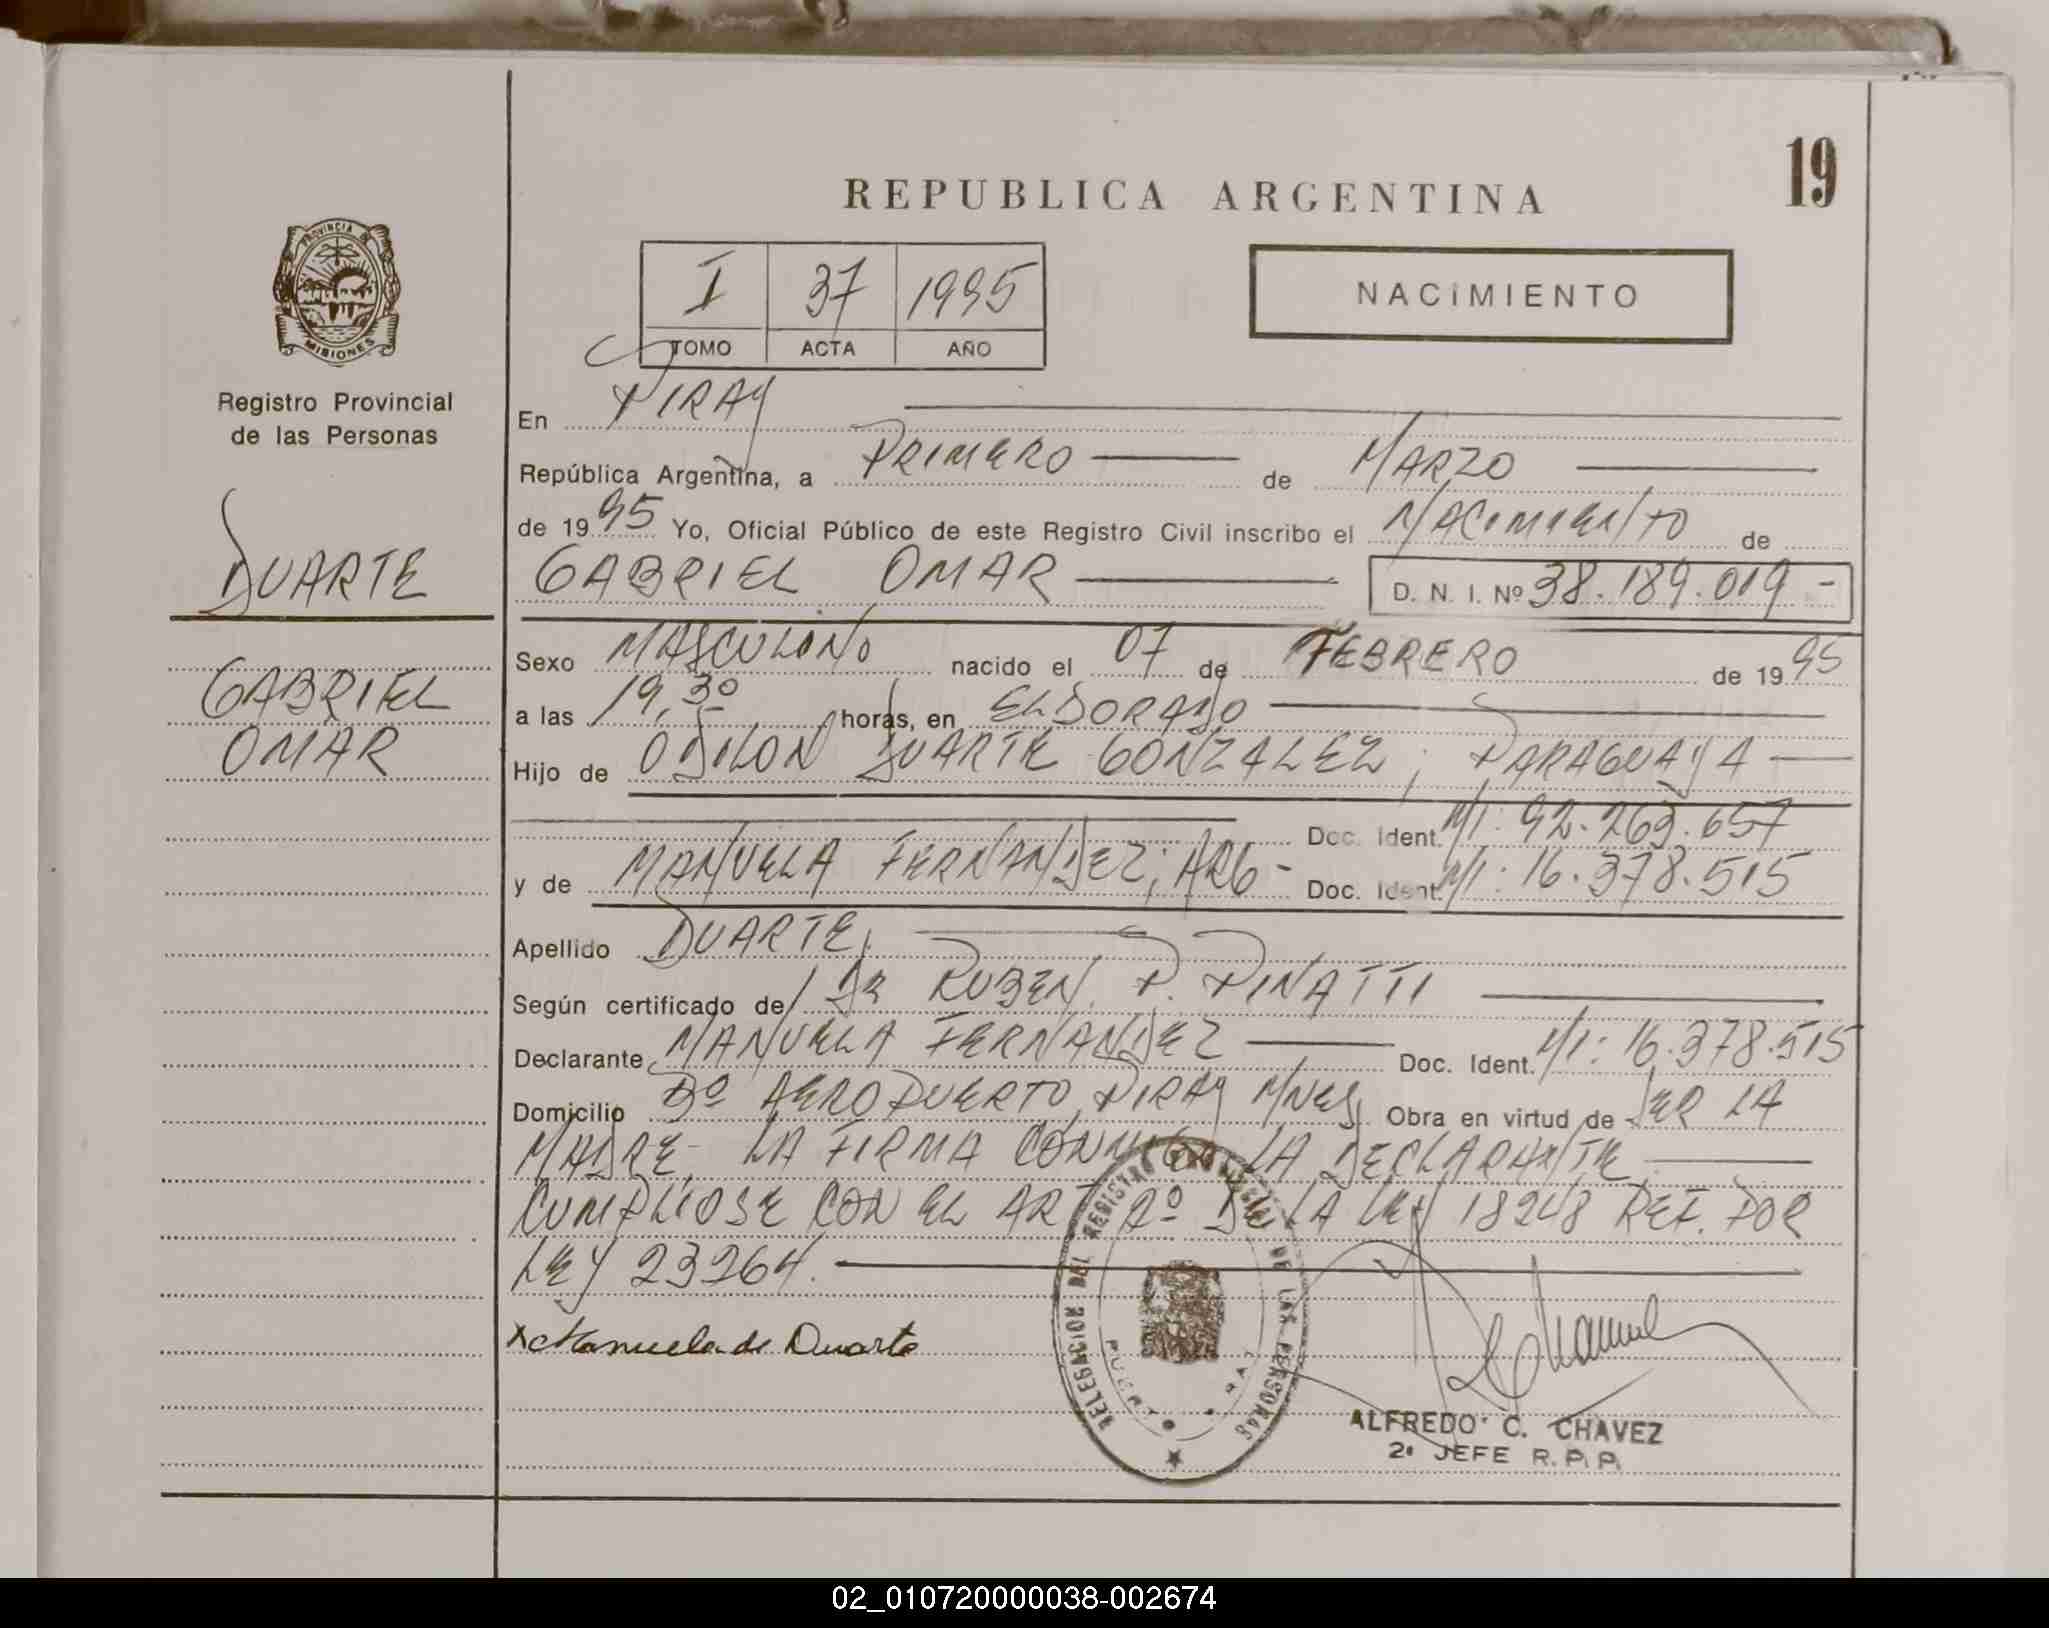 19
REPUBLICA ARGENTINA
PROVINCIA DE
MISIONES
Registro Provincial
de las Personas
I 37 1995
TOMO ACTA AÑO
NACIMIENTO
DUARTE
GABRIEL
OMAR
En PIRAY
República Argentina, a PRIMERO de MARZO
de 1995 Yo, Oficial Público de este Registro Civil inscribo el NACIMIENTO de
GABRIEL OMAR D. N. I. Nº 38.189.019 -
Sexo MASCULINO nacido el 07 de FEBRERO de 1995
a las 19,30 horas, en ELDORADO
Hijo de ODILON DUARTE GONZALEZ; PARAGUAYA
Doc. Ident. M/I: 92.263.657
y de MANUELA FERNANDEZ; ARG - Doc. Ident. M/I: 16.378.515
Apellido DUARTE.
Según certificado de/ DR RUBEN. P. PINATTI
Declarante MANUELA FERNANDEZ Doc. Ident. M/I: 16.378.515
Domicilio Bº AEROPUERTO, PIRAY MNES. Obra en virtud de SER LA
MADRE. LA FIRMA CONMIGO LA DECLARANTE.
CUMPLIOSE CON EL ART 2º DE LA LEY 18248 REF. POR
LEY 23264.
x Manuela de Duarte
DELEGACION DEL REGISTRO PROVINCIAL DE LAS PERSONAS
ALFREDO C. CHAVEZ
2º JEFE R.P.P.
02_010720000038-002674